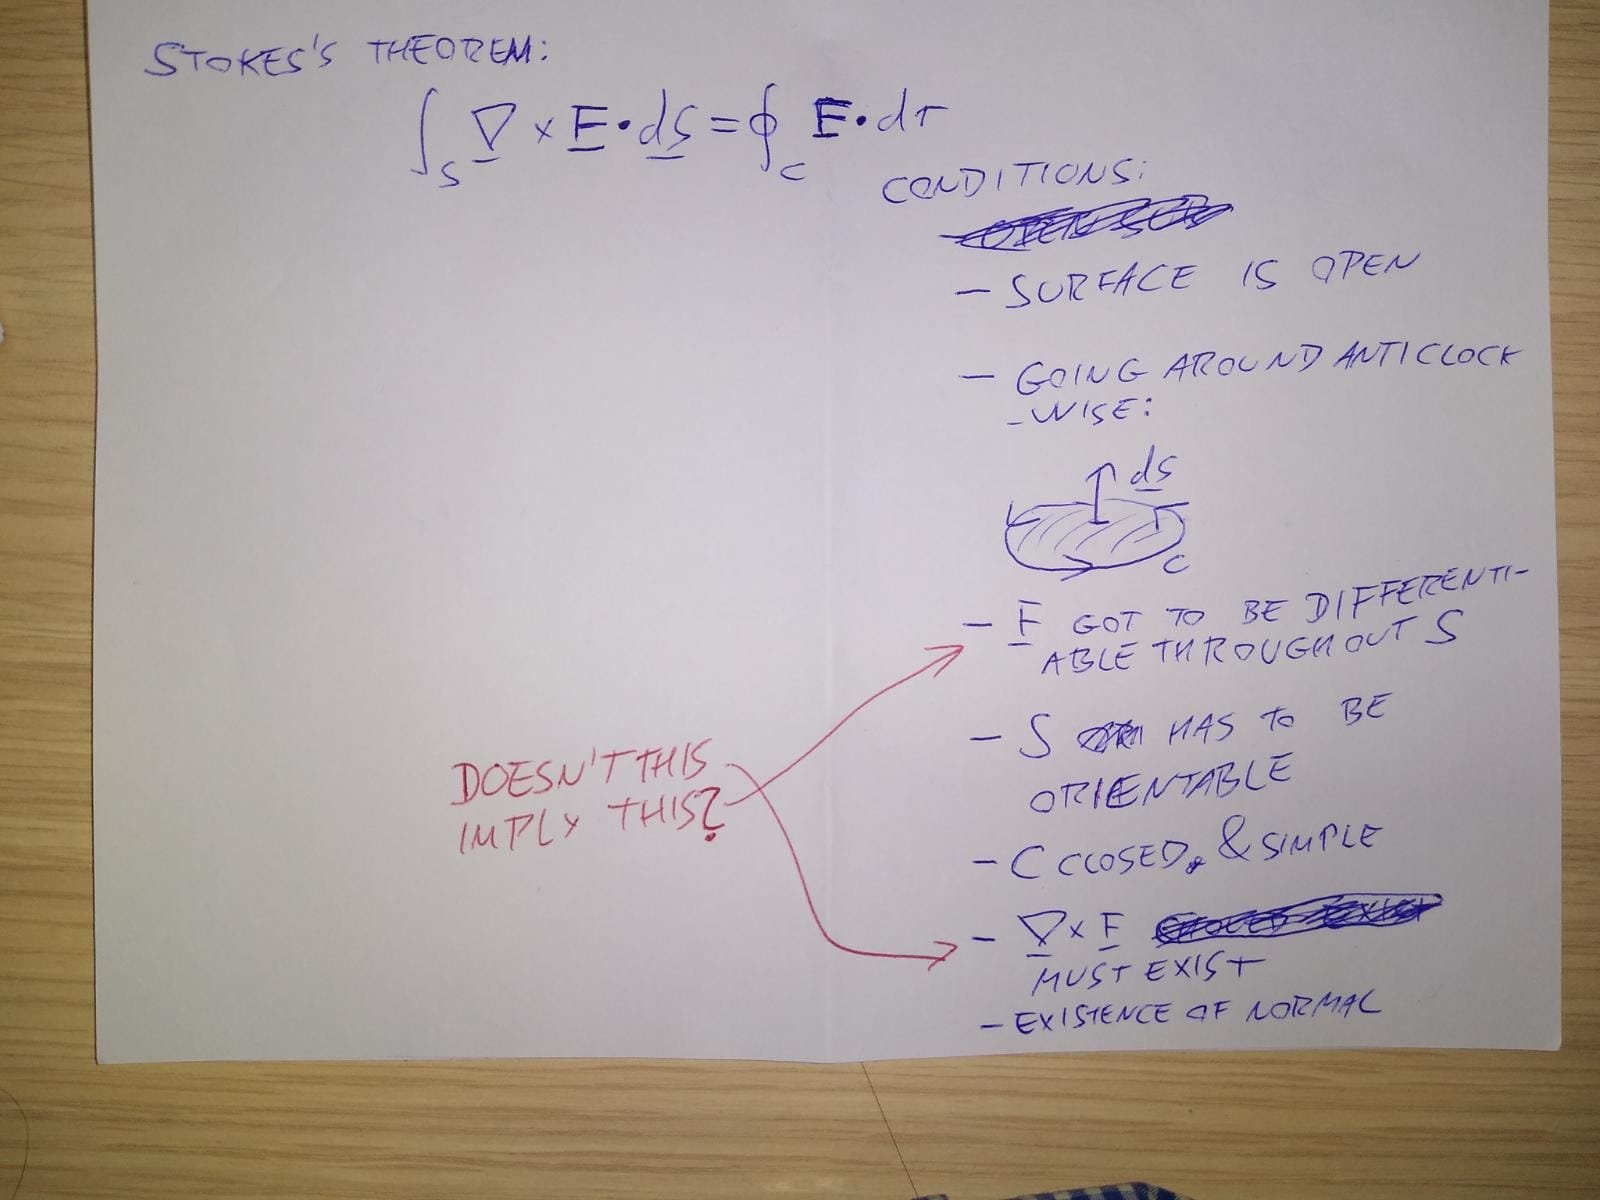 STOKES'S THEOREM:
∫_S ∇ × F · dS = ∮_C F · dr
CONDITIONS:
– SURFACE IS OPEN
– GOING AROUND ANTICLOCK
-WISE:
dS
C
– F GOT TO BE DIFFERENTI-
ABLE THROUGHOUT S
– S HAS TO BE
ORIENTABLE
– C CLOSED, & SIMPLE
– ∇ × F
MUST EXIST
– EXISTENCE OF NORMAL
DOESN'T THIS
IMPLY THIS?